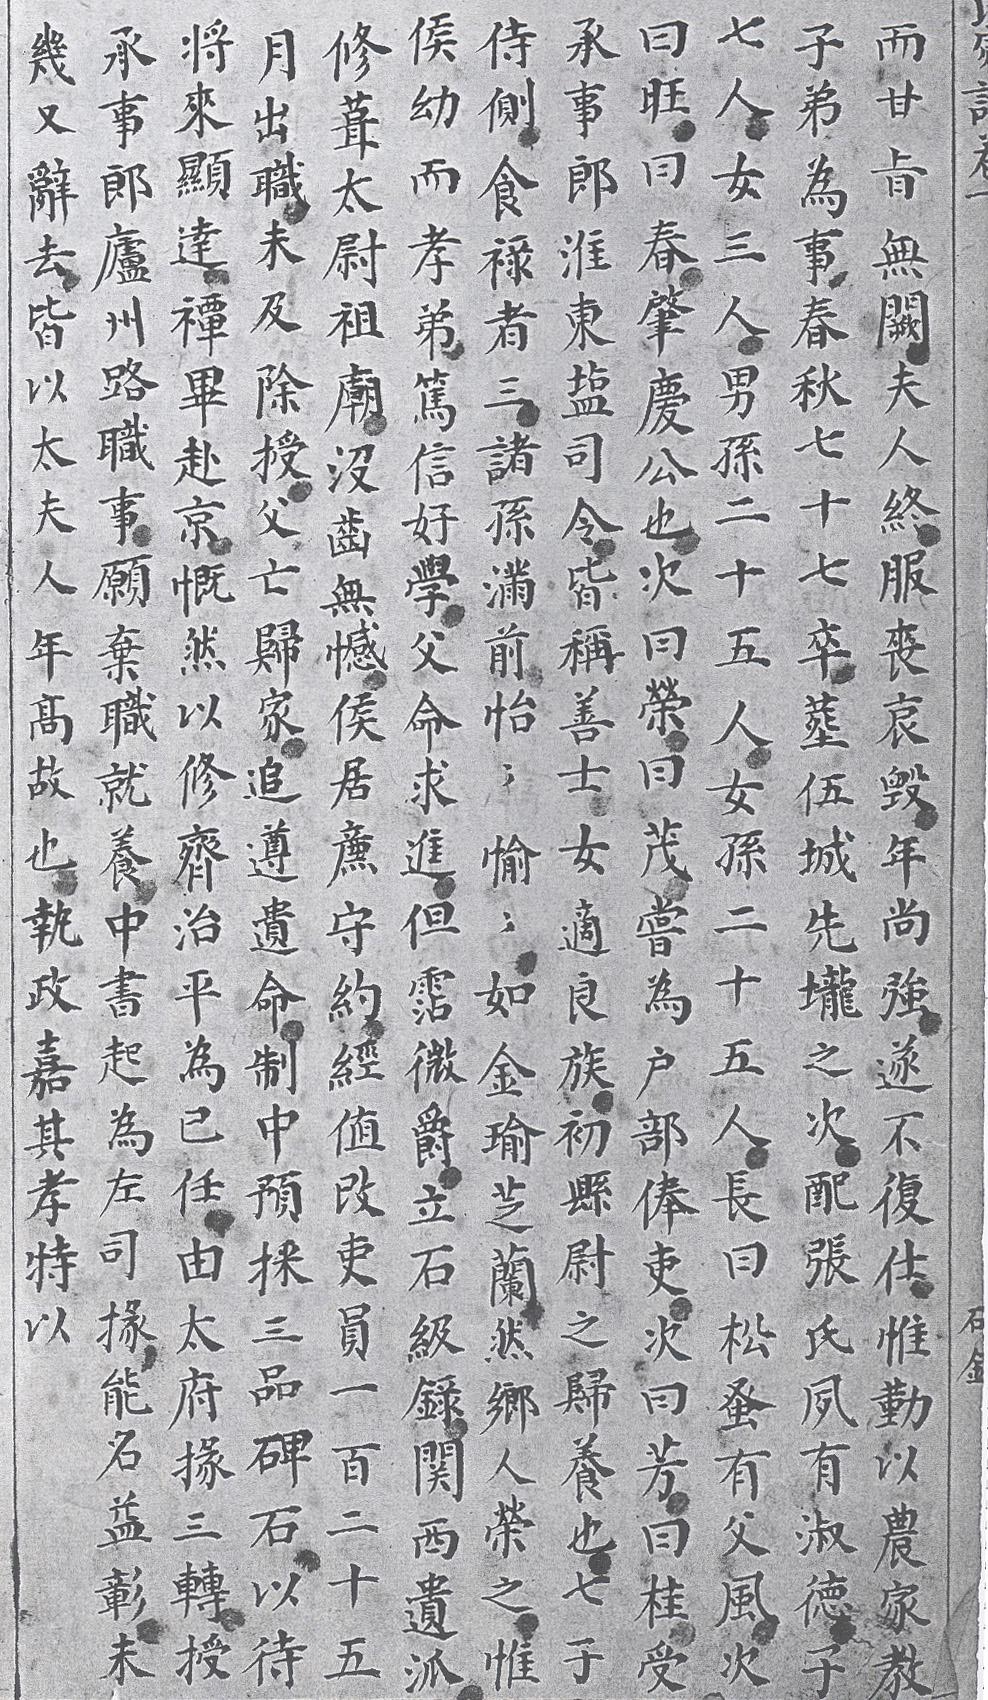 而甘旨無闕夫人終服喪哀毁年尚強遂不復仕惟勤以農家教
子弟為事春秋七十七卒塟伍城先壠之次配張氏夙有淑德子
七人女三人男孫二十五人女孫二十五人長曰松蚤有父風次
曰旺曰春肇慶公也次曰榮曰茂嘗為户部俸吏次曰芳曰桂受
承事郎淮東塩司令皆稱善士女適良族初縣尉之歸養也七子
侍側食禄者三諸孫滿前怡〻愉〻如金瑜芝蘭然鄉人榮之惟
侯幼而孝弟篤信好學父命求進但霑微爵立石級録関西遺派
修葺太尉祖廟沒齒無憾侯居亷守約經值改吏員一百二十五
月出職未及除授父亡歸家追遵遺命制中預採三品碑石以待
將來顯達禫畢赴京慨然以修齊治平為已任由太府掾三轉授
承事郎廬州路職事願棄職就養中書起為左司掾能名益彰未
幾又辭去皆以太夫人年髙故也執政嘉其孝特以